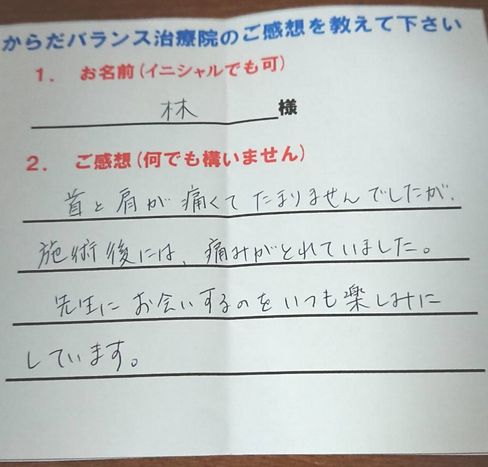 からだバランス治療院のご感想を教えて下さい
1. お名前(イニシャルでも可)
林 様
2. ご感想(何でも構いません)
首と肩が痛くてたまりませんでしたが、
施術後には、痛みがとれていました。
先生にお会いするのをいつも楽しみに
しています。